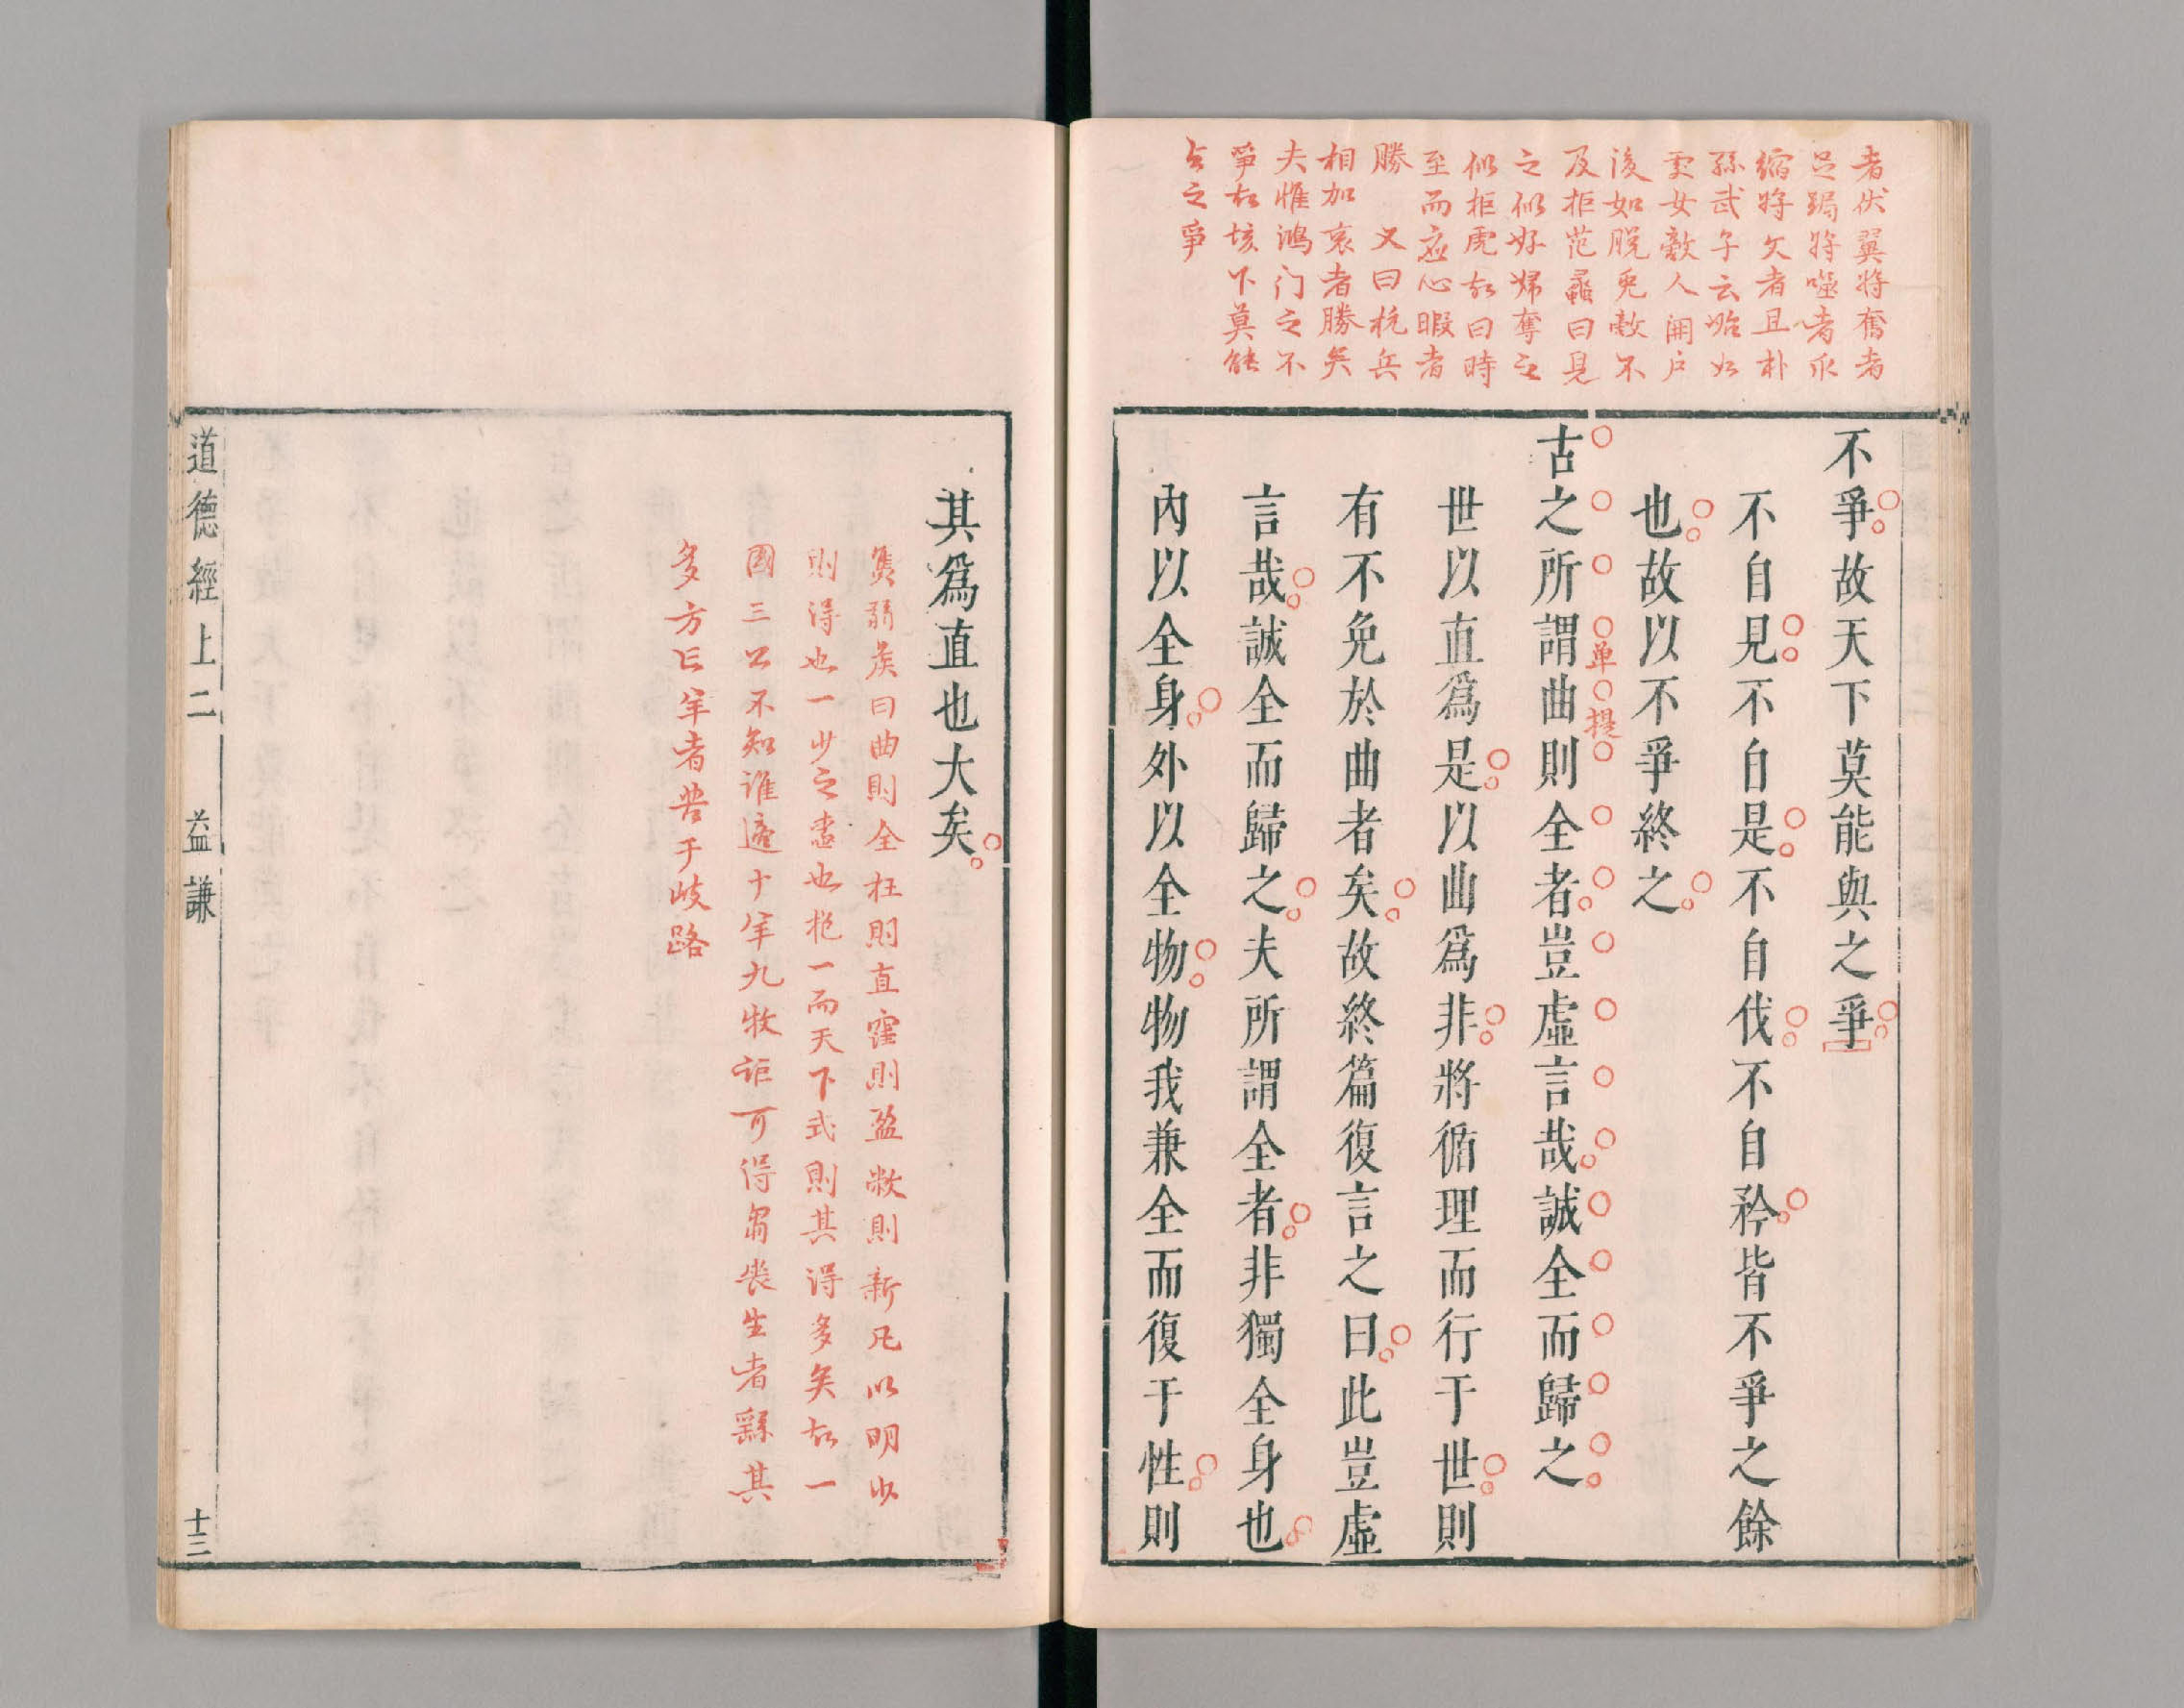 者伏翼將奮者
足跼將噬者爪
縮將文者且朴
孫武子云始如
處女敵人開戶
後如脫兔敵不
及拒范蠡曰見
之似好婦奪之
似拒虎故曰時
至而應心暇者
勝　又曰抗兵
相加哀者勝矣
夫惟鴻门之不
爭故垓下莫能
与之爭
不爭故天下莫能與之爭
不自見不自是不自伐不自矜皆不爭之餘
也故以不爭終之
古之所謂曲則全者豈虛言哉誠全而歸之
单提
世以直爲是以曲爲非將循理而行于世則
有不免於曲者矣故終篇復言之曰此豈虛
言哉誠全而歸之夫所謂全者非獨全身也
內以全身外以全物物我兼全而復于性則
其爲直也大矣
焦弱矦曰曲則全枉則直窪則盈敝則新凡以明少
則得也一少之盡也抱一而天下式則其得多矣故一
國三公不知誰適十羊九牧詎可得芻喪生者繇其
多方亡羊者苦于岐路
道德經上二　益謙
十三